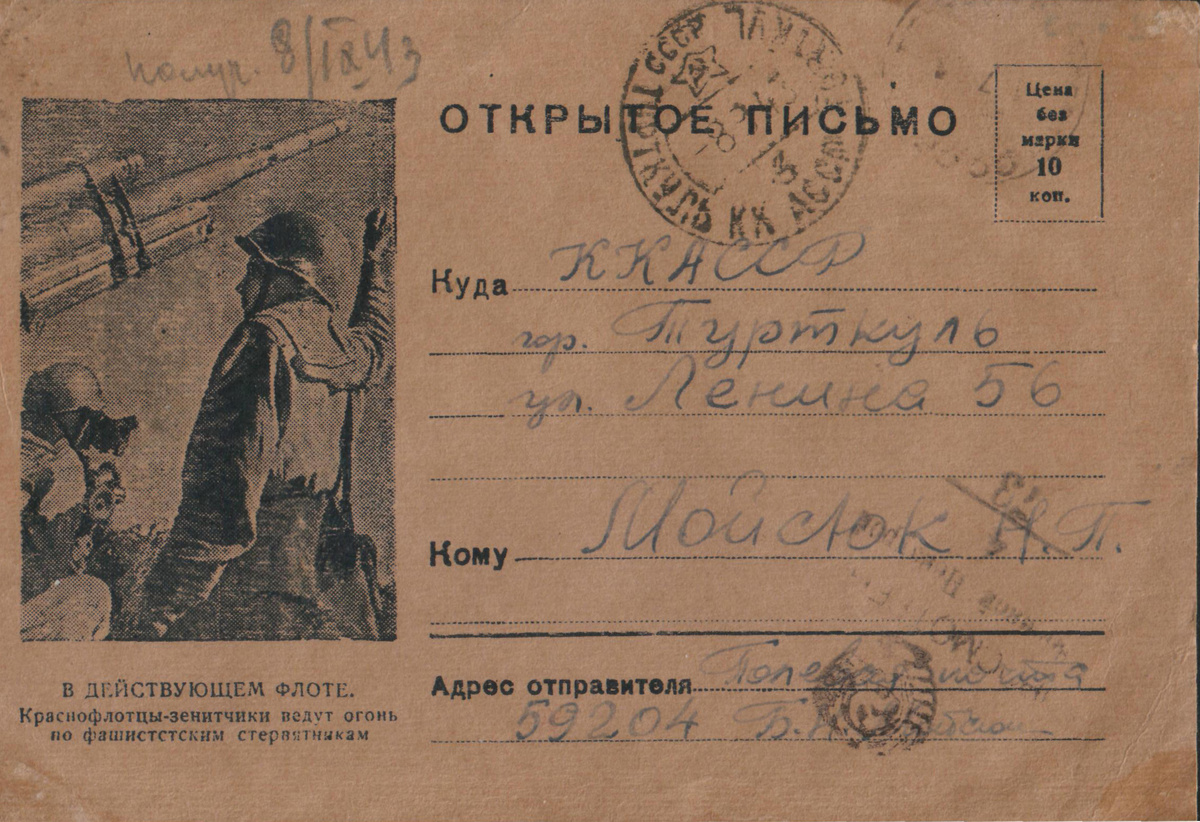 получ. 8/IX 43
ОТКРЫТОЕ ПИСЬМО
Цена
без
марки
10
коп.
ПОЧТА СССР
ТУРТКУЛЬ КК АССР
Куда ККАССР
гор. Турткуль
ул. Ленина 56
Кому Мойсюк Н. П.
Адрес отправителя Полевая почта
59204 Б.
В ДЕЙСТВУЮЩЕМ ФЛОТЕ.
Краснофлотцы-зенитчики ведут огонь
по фашистстским стервятникам